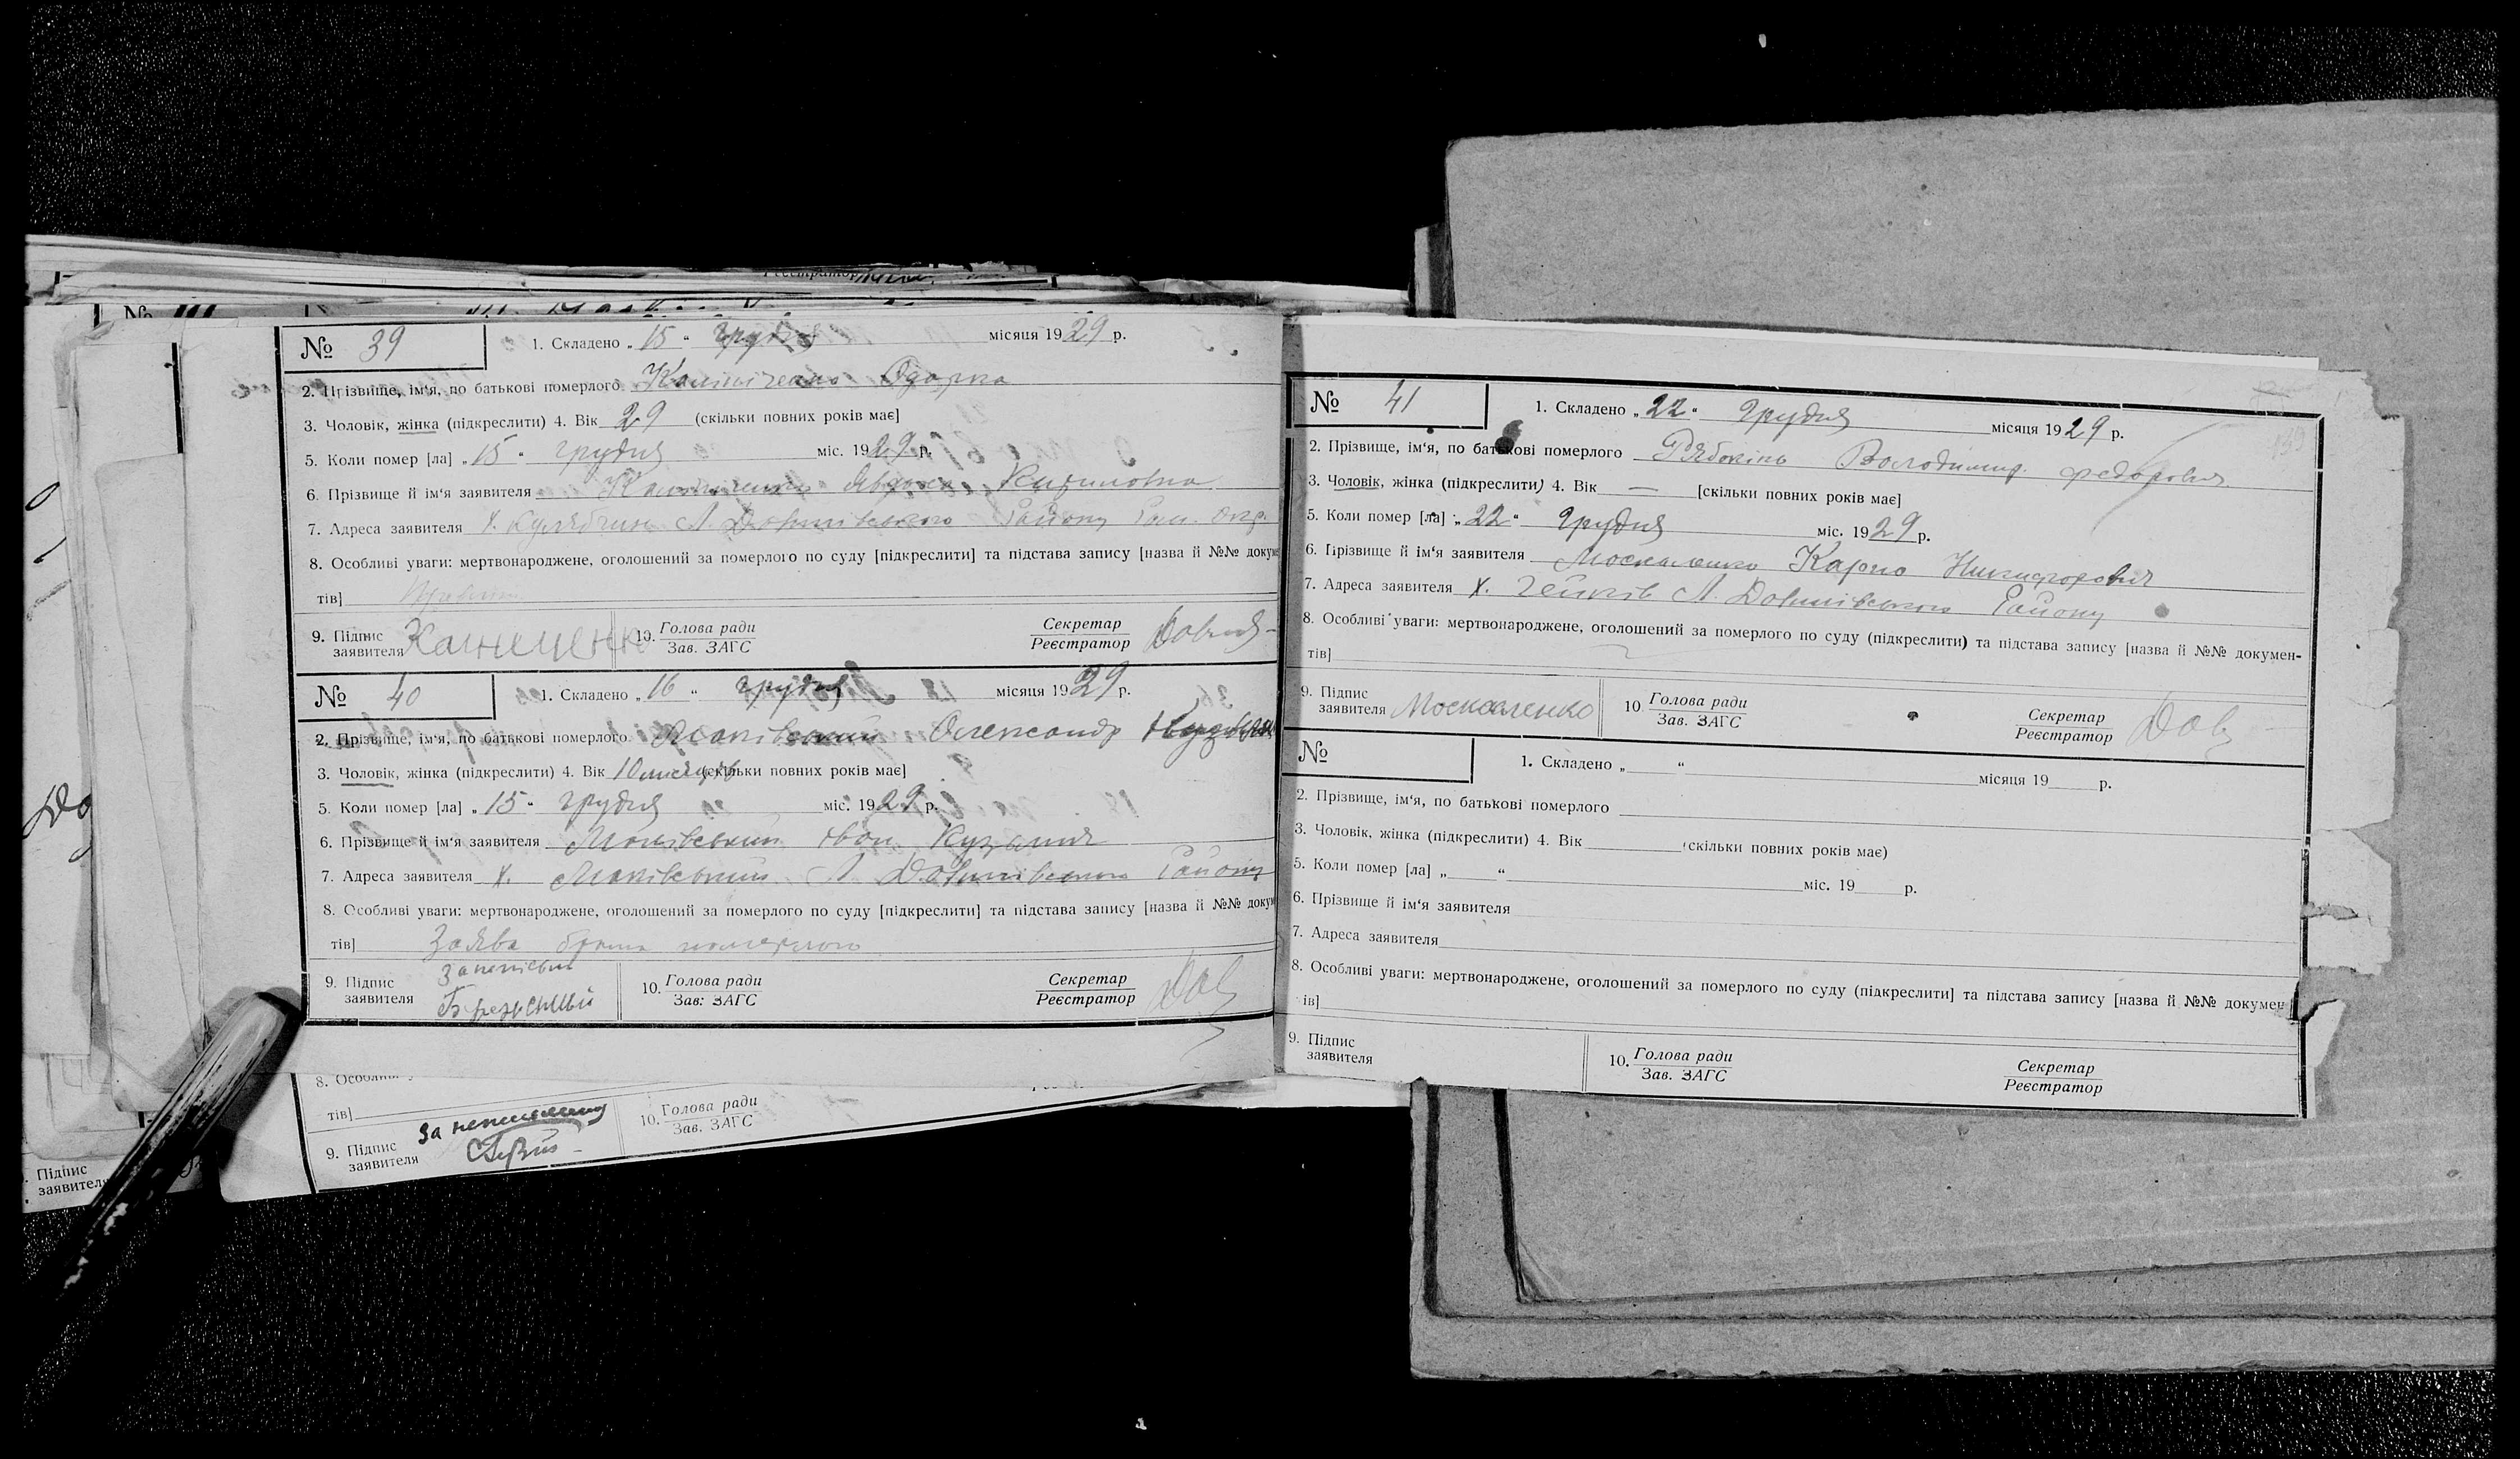 № 39
1. Складено „ 15 “ грудня місяця 1929 р.
2. Прізвище, ім‘я, по батькові померлого Одарка
3. Чоловік, жінка (підкреслити) 4. Вік 29 (скільки повних років має]
5. Коли помер [ла] „ 15 “ грудня міс. 1929 р.
6. Прізвище й ім‘я заявителя
7. Адреса заявителя х. Л. Району
8. Особливі уваги: мертвонароджене, оголошений за померлого по суду [підкреслити] та підстава запису [назва й №№ докуме
тів]
9. Підпис заявителя 10. Голова ради Зав. ЗАГС Секретар Реєстратор
№ 40
1. Складено „ 16 “ грудня місяця 1929 р.
2. Прізвище, ім‘я, по батькові померлого Маківський Олександр
3. Чоловік, жінка (підкреслити) 4. Вік 10 місяців (скільки повних років має]
5. Коли помер [ла] „ 15 “ грудня міс. 1929 р.
6. Прізвище й ім‘я заявителя Маківський Іван Кузьмич
7. Адреса заявителя х. Маківський Л Району
8. Особливі уваги: мертвонароджене, оголошений за померлого по суду [підкреслити] та підстава запису [назва й №№ докум
тів] Заява брата померлого
9. Підпис заявителя 10. Голова ради Зав: ЗАГС Секретар Реєстратор
8. Особливі
тів]
9. Підпис заявителя 10. Голова ради Зав. ЗАГС
Підпис
заявителя
№ 41
1. Складено „ 22 “ Грудня місяця 1929 р.
2. Прізвище, ім‘я, по батькові померлого Рябокінь Володимир Федорович
3. Чоловік, жінка (підкреслити) 4. Вік — [скільки повних років має]
5. Коли помер [ла] „ 22 “ Грудня міс. 1929 р.
6. Прізвище й ім‘я заявителя Москаленко Карпо Никифорович
7. Адреса заявителя х. Л. Району
8. Особливі уваги: мертвонароджене, оголошений за померлого по суду (підкреслити) та підстава запису [назва й №№ докумен-
тів]
9. Підпис заявителя Москаленко 10. Голова ради Зав. ЗАГС Секретар Реєстратор
№
1. Складено „ “ місяця 19 р.
2. Прізвище, ім‘я, по батькові померлого
3. Чоловік, жінка (підкреслити) 4. Вік (скільки повних років має)
5. Коли помер [ла] „ “ міс. 19 р.
6. Прізвище й ім‘я заявителя
7. Адреса заявителя
8. Особливі уваги: мертвонароджене, оголошений за померлого по суду (підкреслити] та підстава запису [назва й №№ докумен
ів]
9. Підпис заявителя 10. Голова ради Зав. ЗАГС Секретар Реєстратор